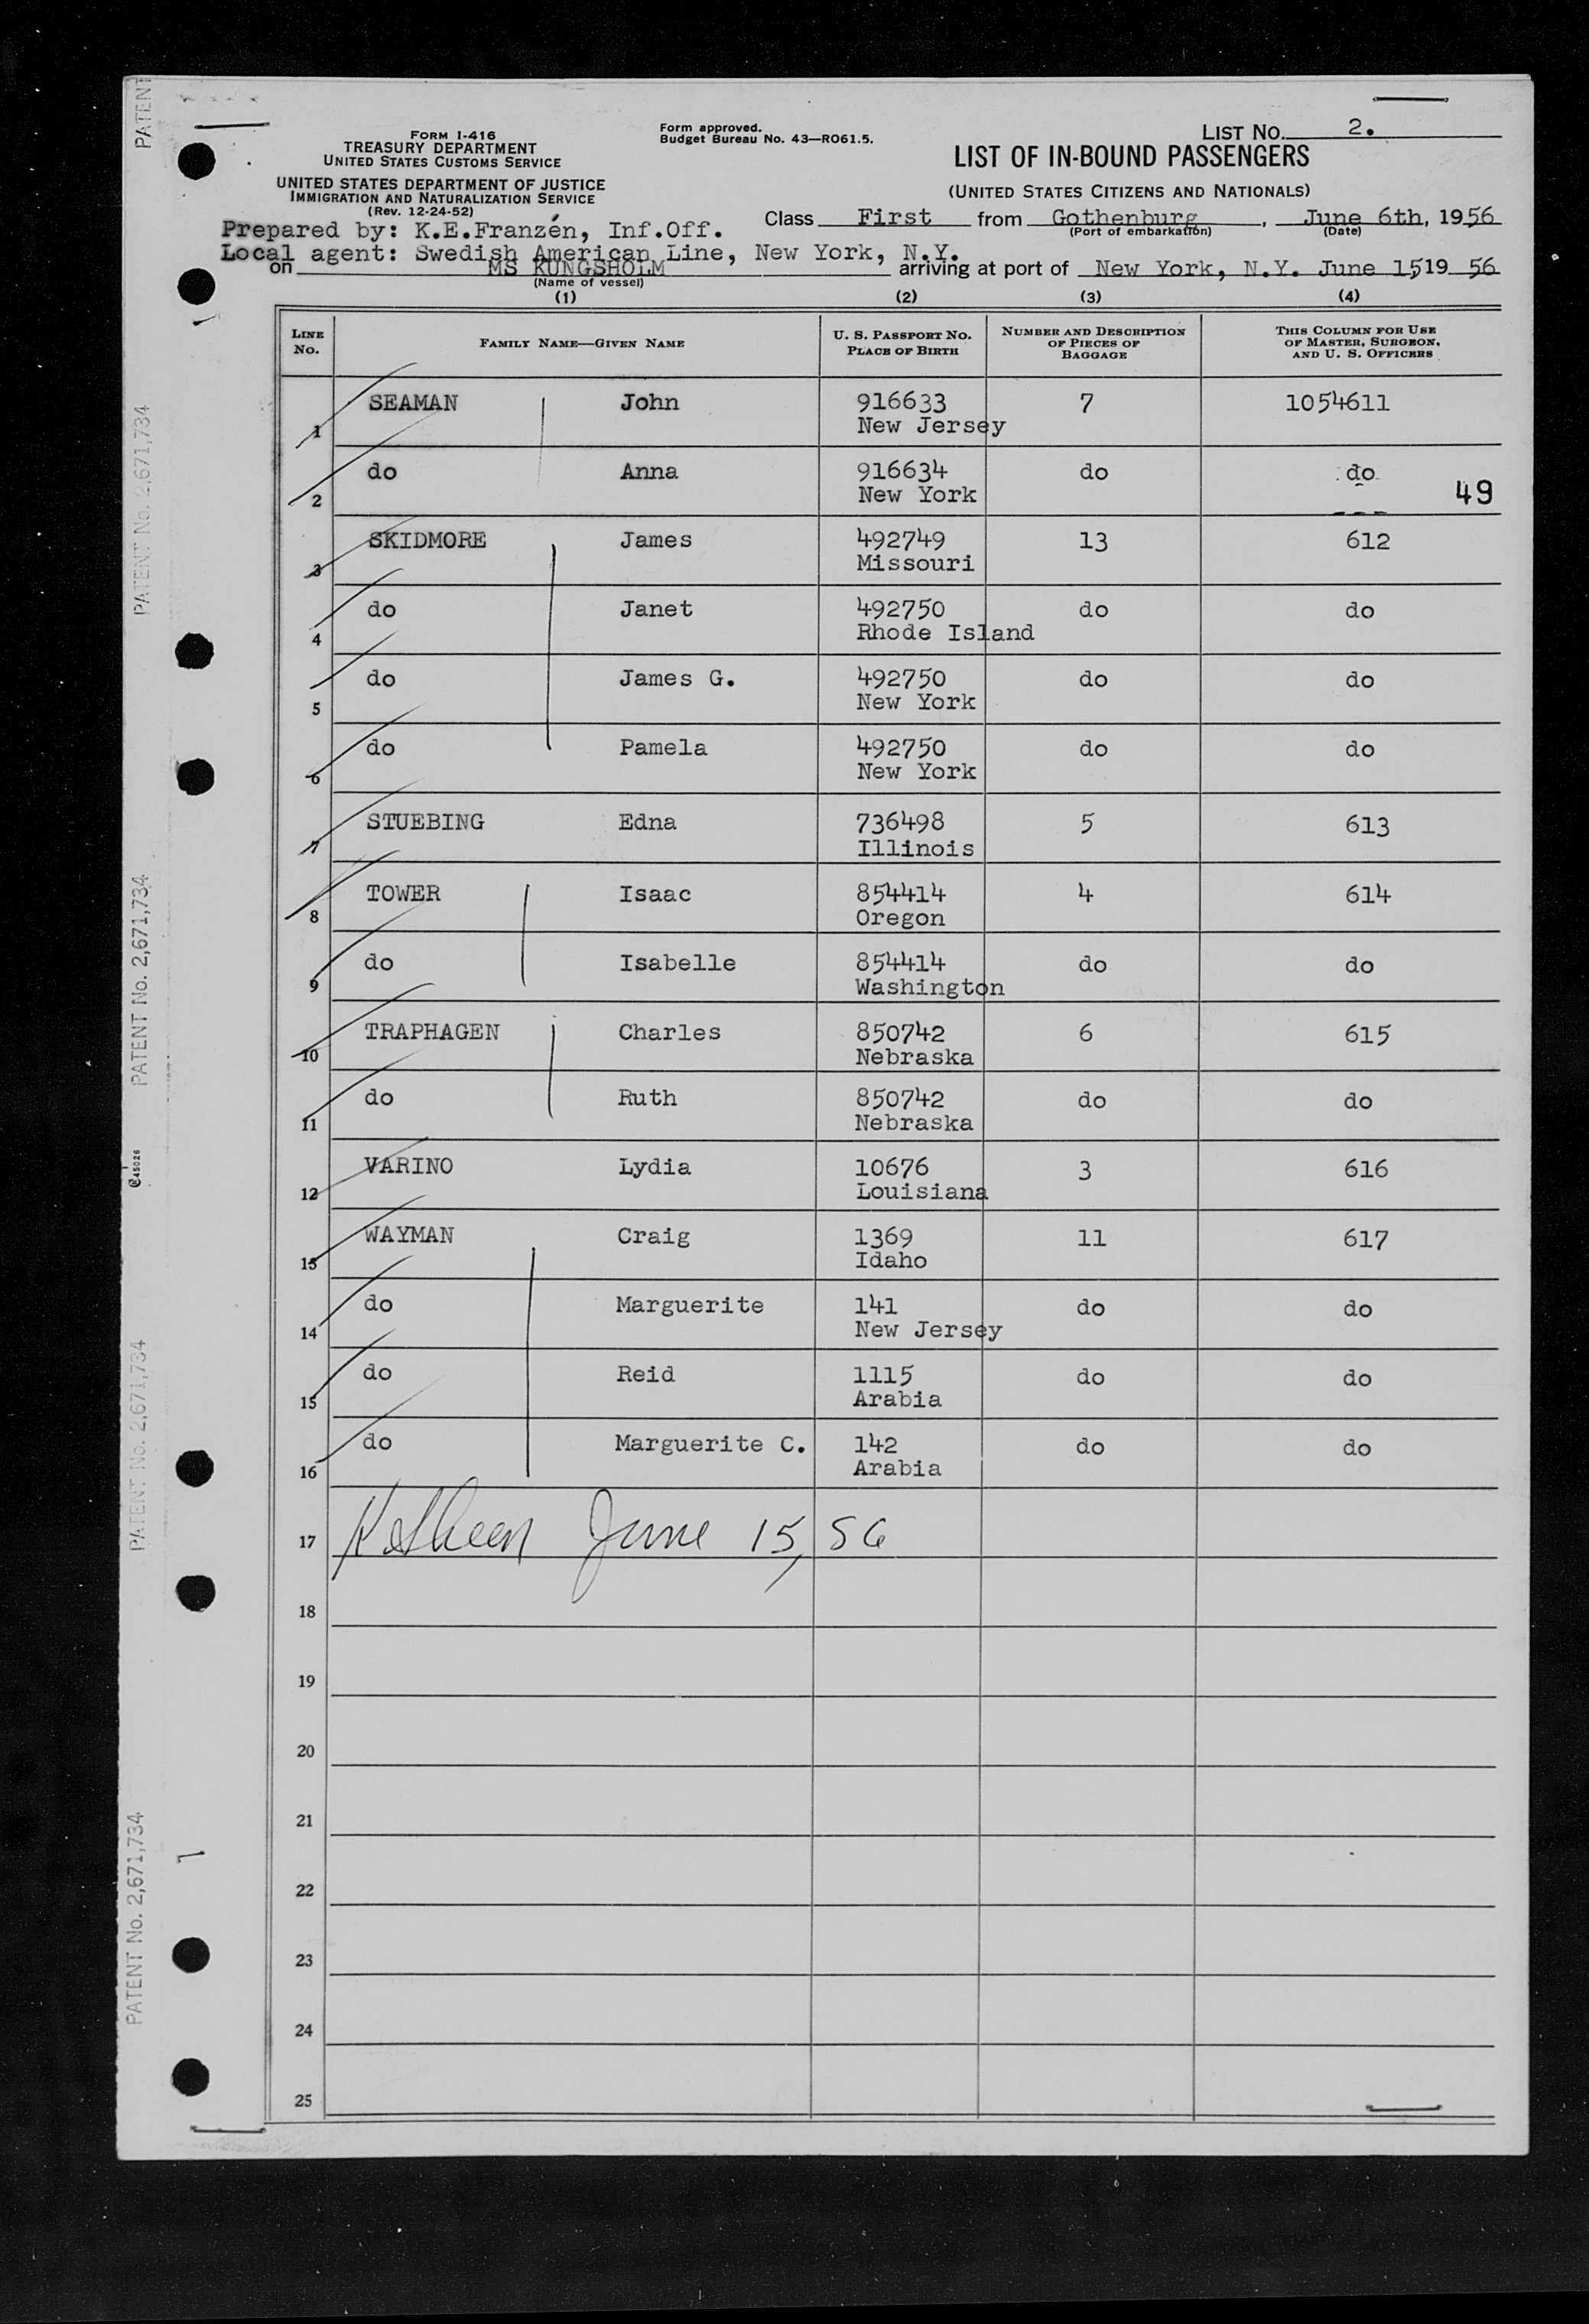 FORM I-416
TREASURY DEPARTMENT
UNITED STATES CUSTOMS SERVICE
UNITED STATES DEPARTMENT OF JUSTICE
IMMIGRATION AND NATURALIZATION SERVICE
(Rev. 12-24-52)
Form approved.
Budget Bureau No. 43—RO61.5.
LIST NO. 2.
LIST OF IN-BOUND PASSENGERS
(UNITED STATES CITIZENS AND NATIONALS)
Prepared by: K.E.Franzén, Inf.Off.
Class First from Gothenburg, June 6th, 1956
(Port of embarkation) (Date)
Local agent: Swedish American Line, New York, N.Y.
on MS KUNGSHOLM arriving at port of New York, N.Y. June 15 19 56
(Name of vessel)
(1) (2) (3) (4)
LINE NO. FAMILY NAME—GIVEN NAME U. S. PASSPORT NO. PLACE OF BIRTH NUMBER AND DESCRIPTION OF PIECES OF BAGGAGE THIS COLUMN FOR USE OF MASTER, SURGEON, AND U. S. OFFICERS
1 SEAMAN John 916633 7 1054611
New Jersey
2 do Anna 916634 do do
New York 49
3 SKIDMORE James 492749 13 612
Missouri
4 do Janet 492750 do do
Rhode Island
5 do James G. 492750 do do
New York
6 do Pamela 492750 do do
New York
7 STUEBING Edna 736498 5 613
Illinois
8 TOWER Isaac 854414 4 614
Oregon
9 do Isabelle 854414 do do
Washington
10 TRAPHAGEN Charles 850742 6 615
Nebraska
11 do Ruth 850742 do do
Nebraska
12 VARINO Lydia 10676 3 616
Louisiana
13 WAYMAN Craig 1369 11 617
Idaho
14 do Marguerite 141 do do
New Jersey
15 do Reid 1115 do do
Arabia
16 do Marguerite C. 142 do do
Arabia
17 June 15, 56
18
19
20
21
22
23
24
25
PATENT
PATENT No. 2,671,734
PATENT No. 2,671,734
C45026
PATENT No. 2,671,734
PATENT No. 2,671,734